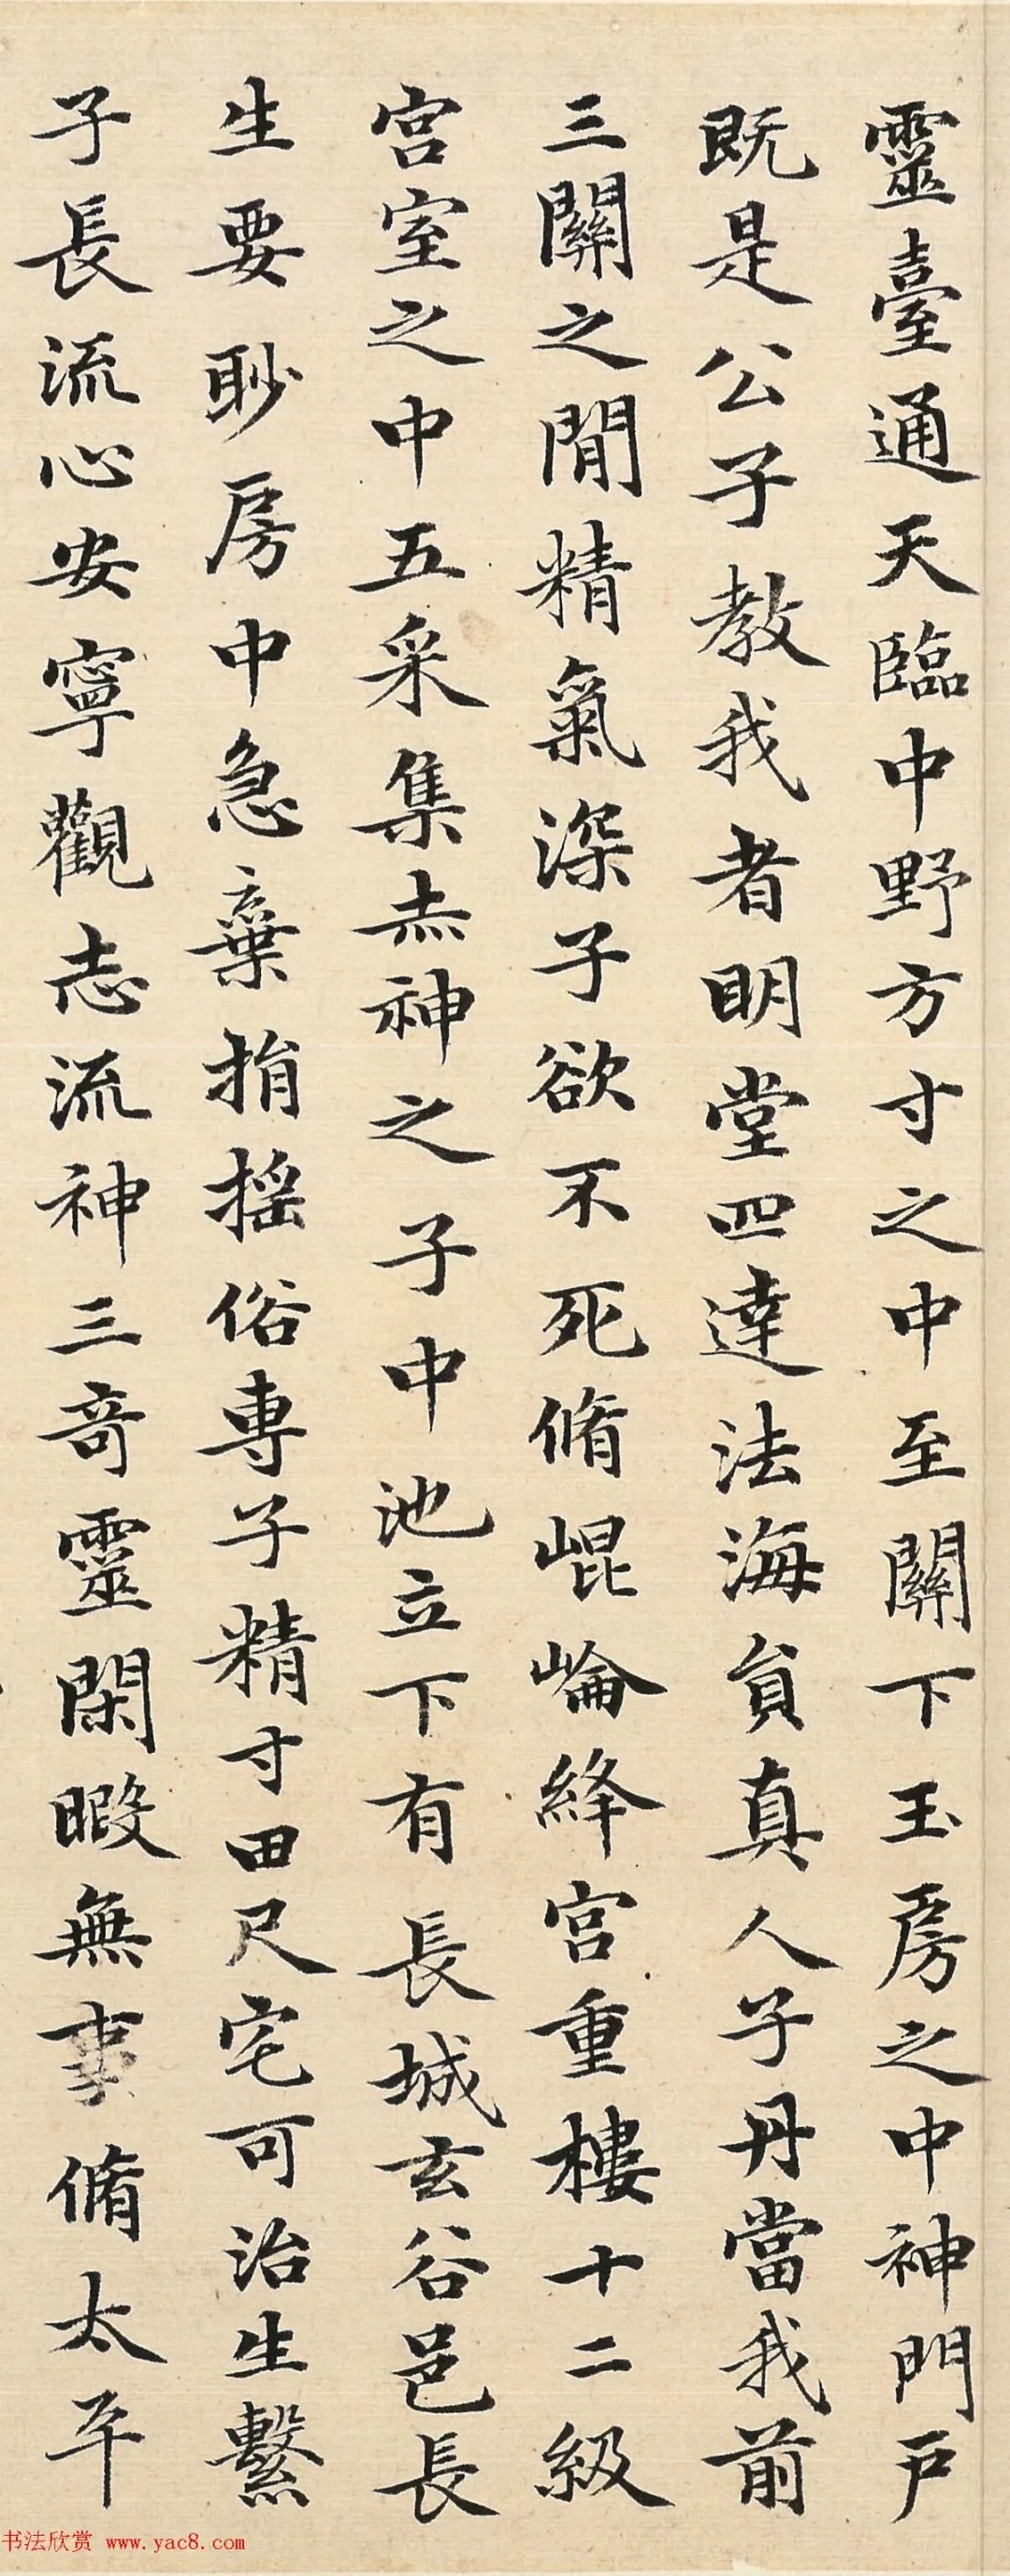 靈臺通天臨中野方寸之中至關下玉房之中神門户
既是公子教我者明堂四達法海負真人子丹當我前
三關之間精氣深子欲不死脩崐崘絳宫重樓十二級
宫室之中五采集赤神之子中池立下有長城玄谷邑長
生要眇房中急棄捐摇俗専子精寸田尺宅可治生繫
子長流心安寧觀志流神三奇靈閑暇無事脩太平
书法欣赏 www.yac8.com